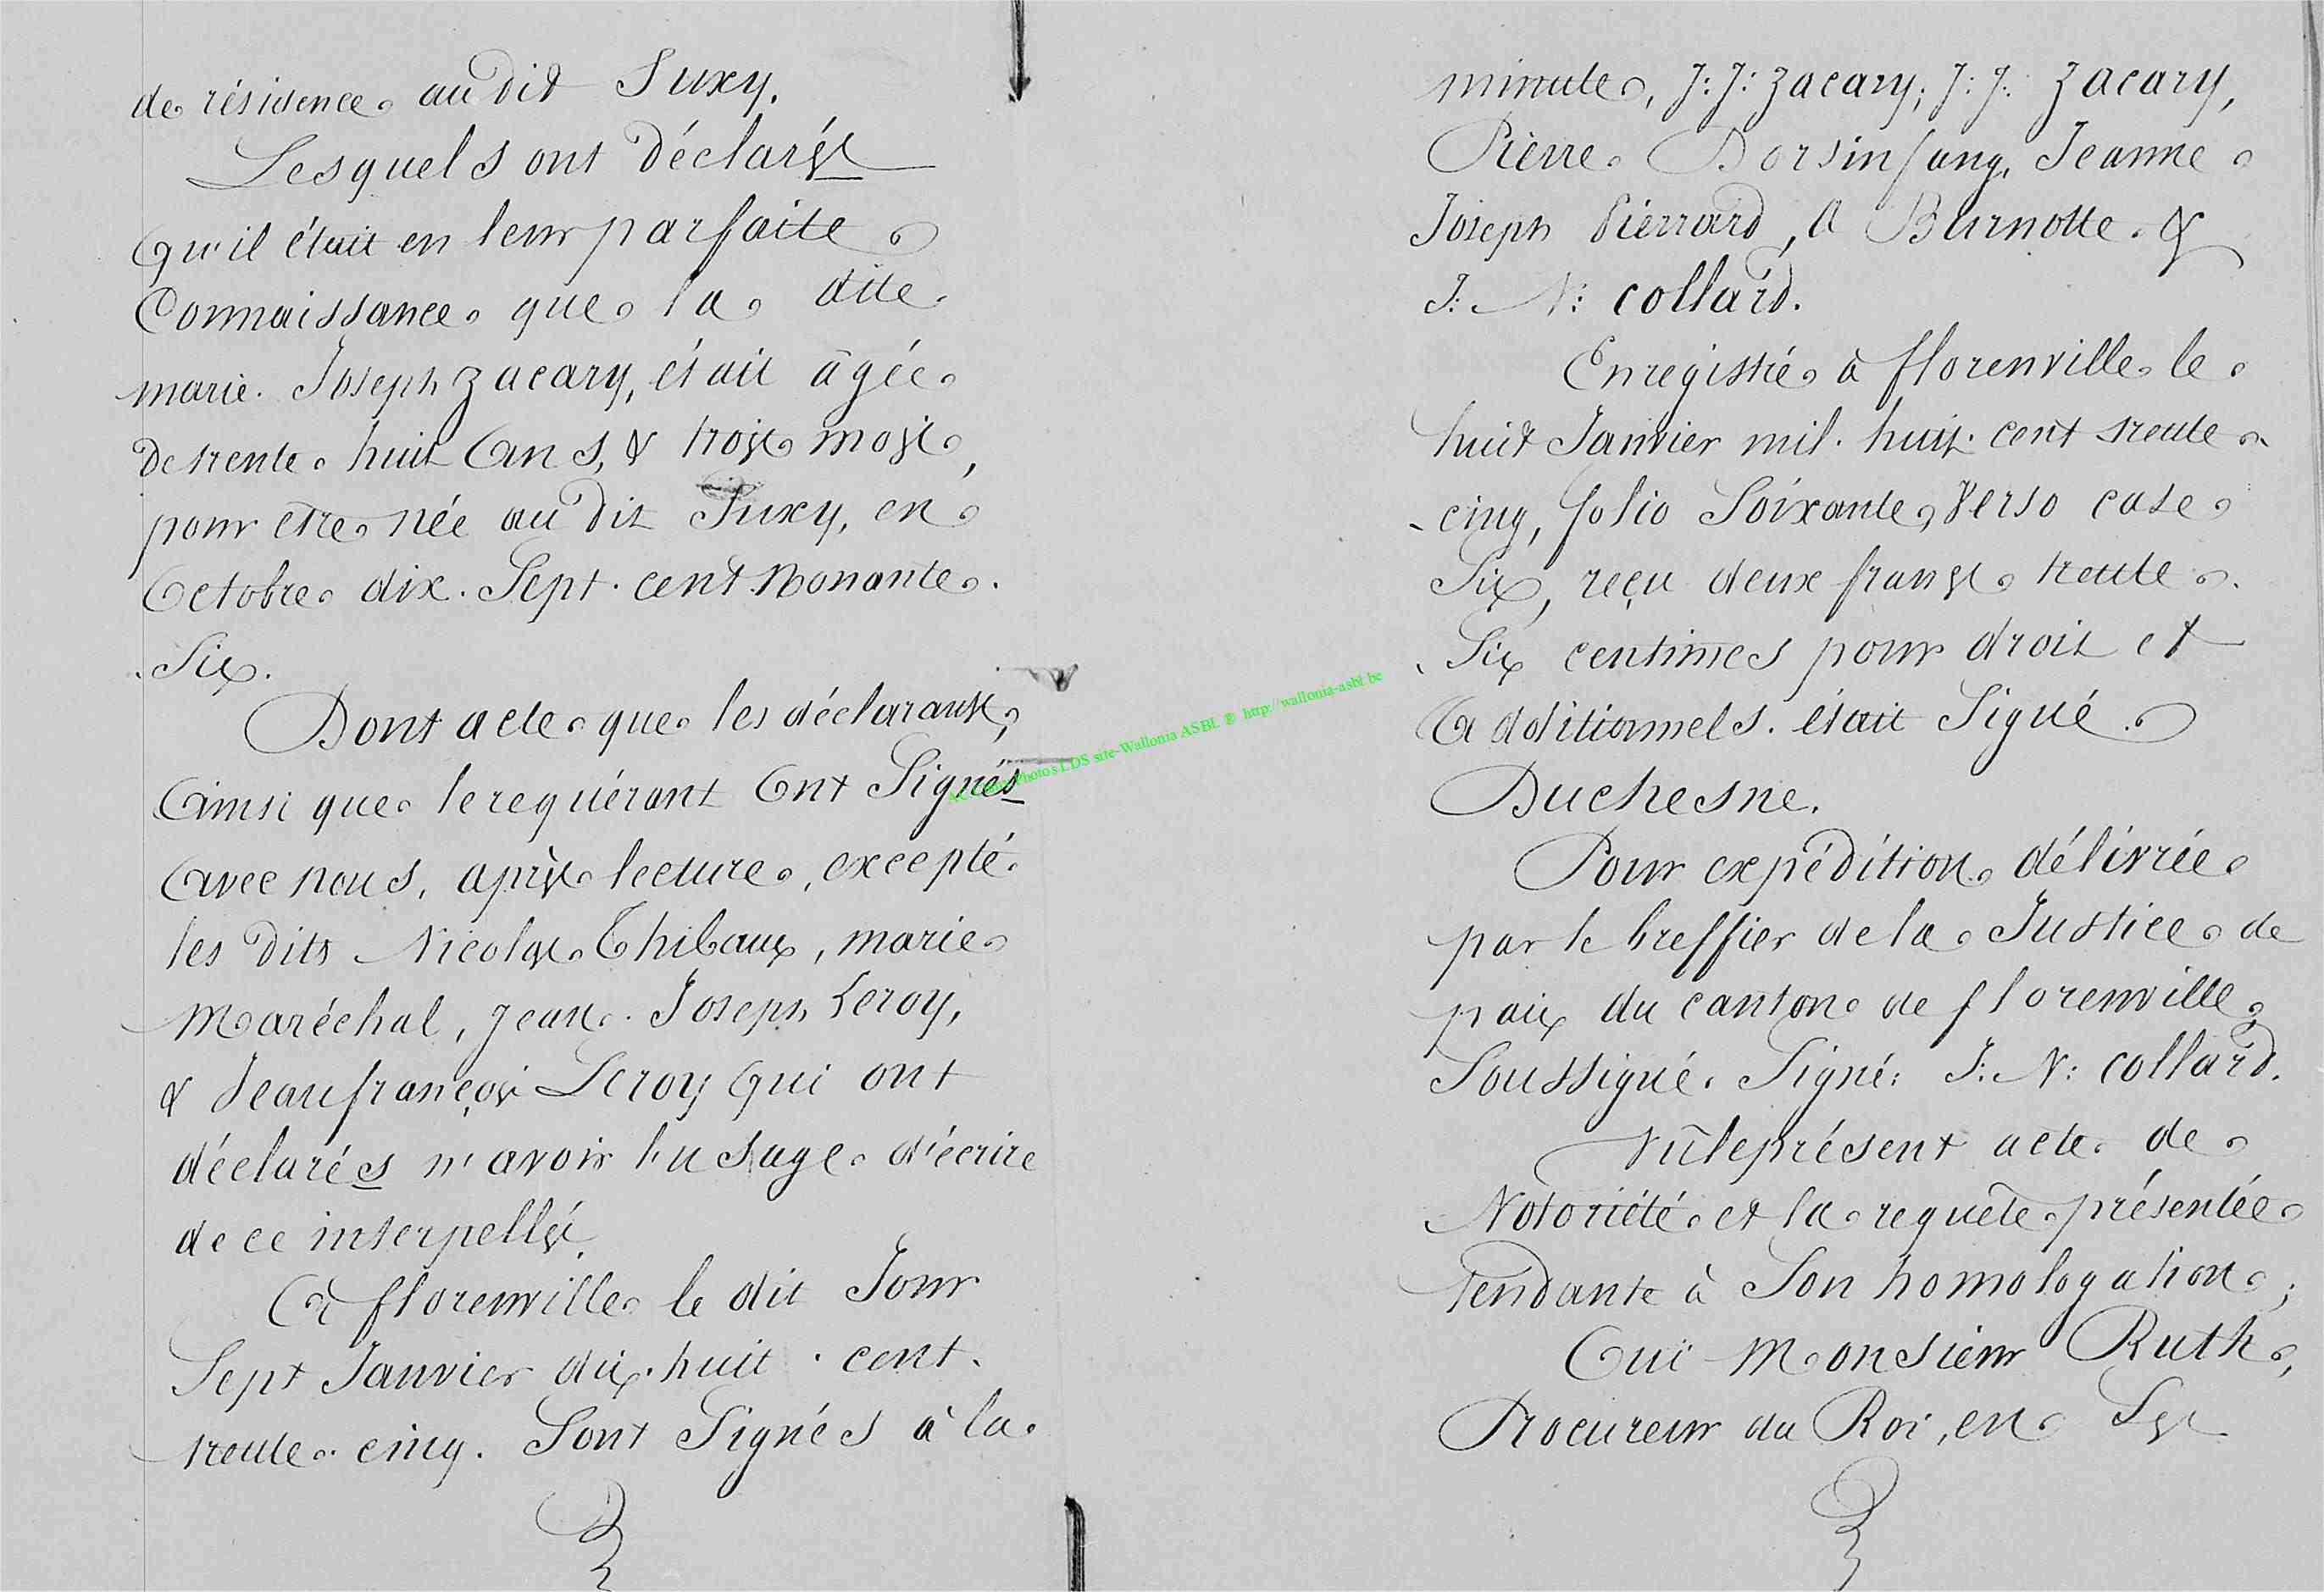 de résidence audit Suxy.
Lesquels ont déclarés
qu'il était en leur parfaite
Connaissance que la dite
marie Joseph Zacary, était âgée
de trente huit ans, & trois mois,
pour être née au dit Suxy, en
Octobre dix-Sept-cent Nonante-
-Six.
Dont acte que les déclarants,
Ainsi que le requérant Ont Signés
Avec nous, après lecture, excepté
les dits Nicolas Thibaux, marie
Maréchal, Jean-Joseph Leroy,
& Jean françois Leroy qui ont
déclarés n'avoir l'usage d'écrire
de ce interpellés.
A florenville le dit Jour
Sept Janvier dix-huit-cent-
trente-cinq. Sont Signés à la
minute, J: J: Zacary; J: J: Zacary,
Pierre Dorsinfang, Jeanne
Joseph Pierrard, A Burnotte &
J: N: collard.
Enregistré à florenville le
huit Janvier mil-huit-cent trente
-cinq, folio Soixante, Verso case
Six, reçu deux francs trente-
-Six centimes pour droit et
Additionnels. était Signé
Duchesne.
Pour expédition délivrée
par le Greffier de la Justice de
paix du canton de florenville,
Soussigné. Signé: J: N: collard.
Vû le présent acte de
Notoriété et la requête présentée
tendante à Son homologation;
Oui Monsieur Ruth,
Procureur du Roi, en Ses
Photos LDS site-Wallonia ASBL ® http://wallonia-asbl.be